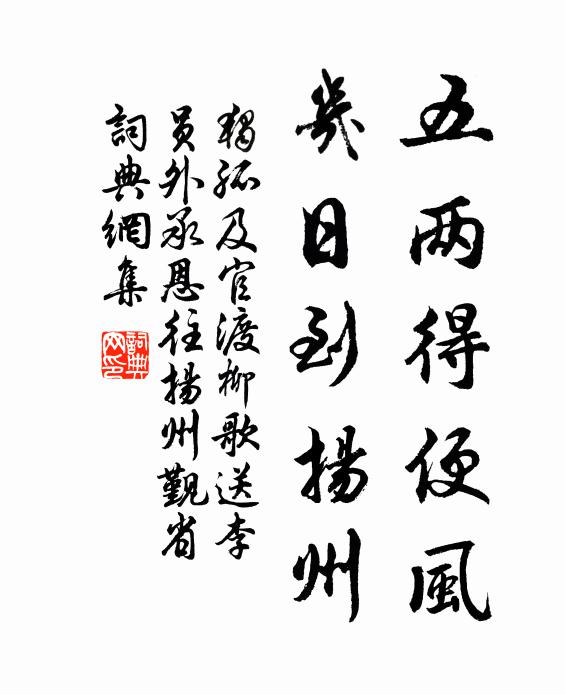 五两得便風
幾日到揚州
獨孤及官渡柳歌送李
員外承恩往揚州觐省
詞典網集
詞典
网印